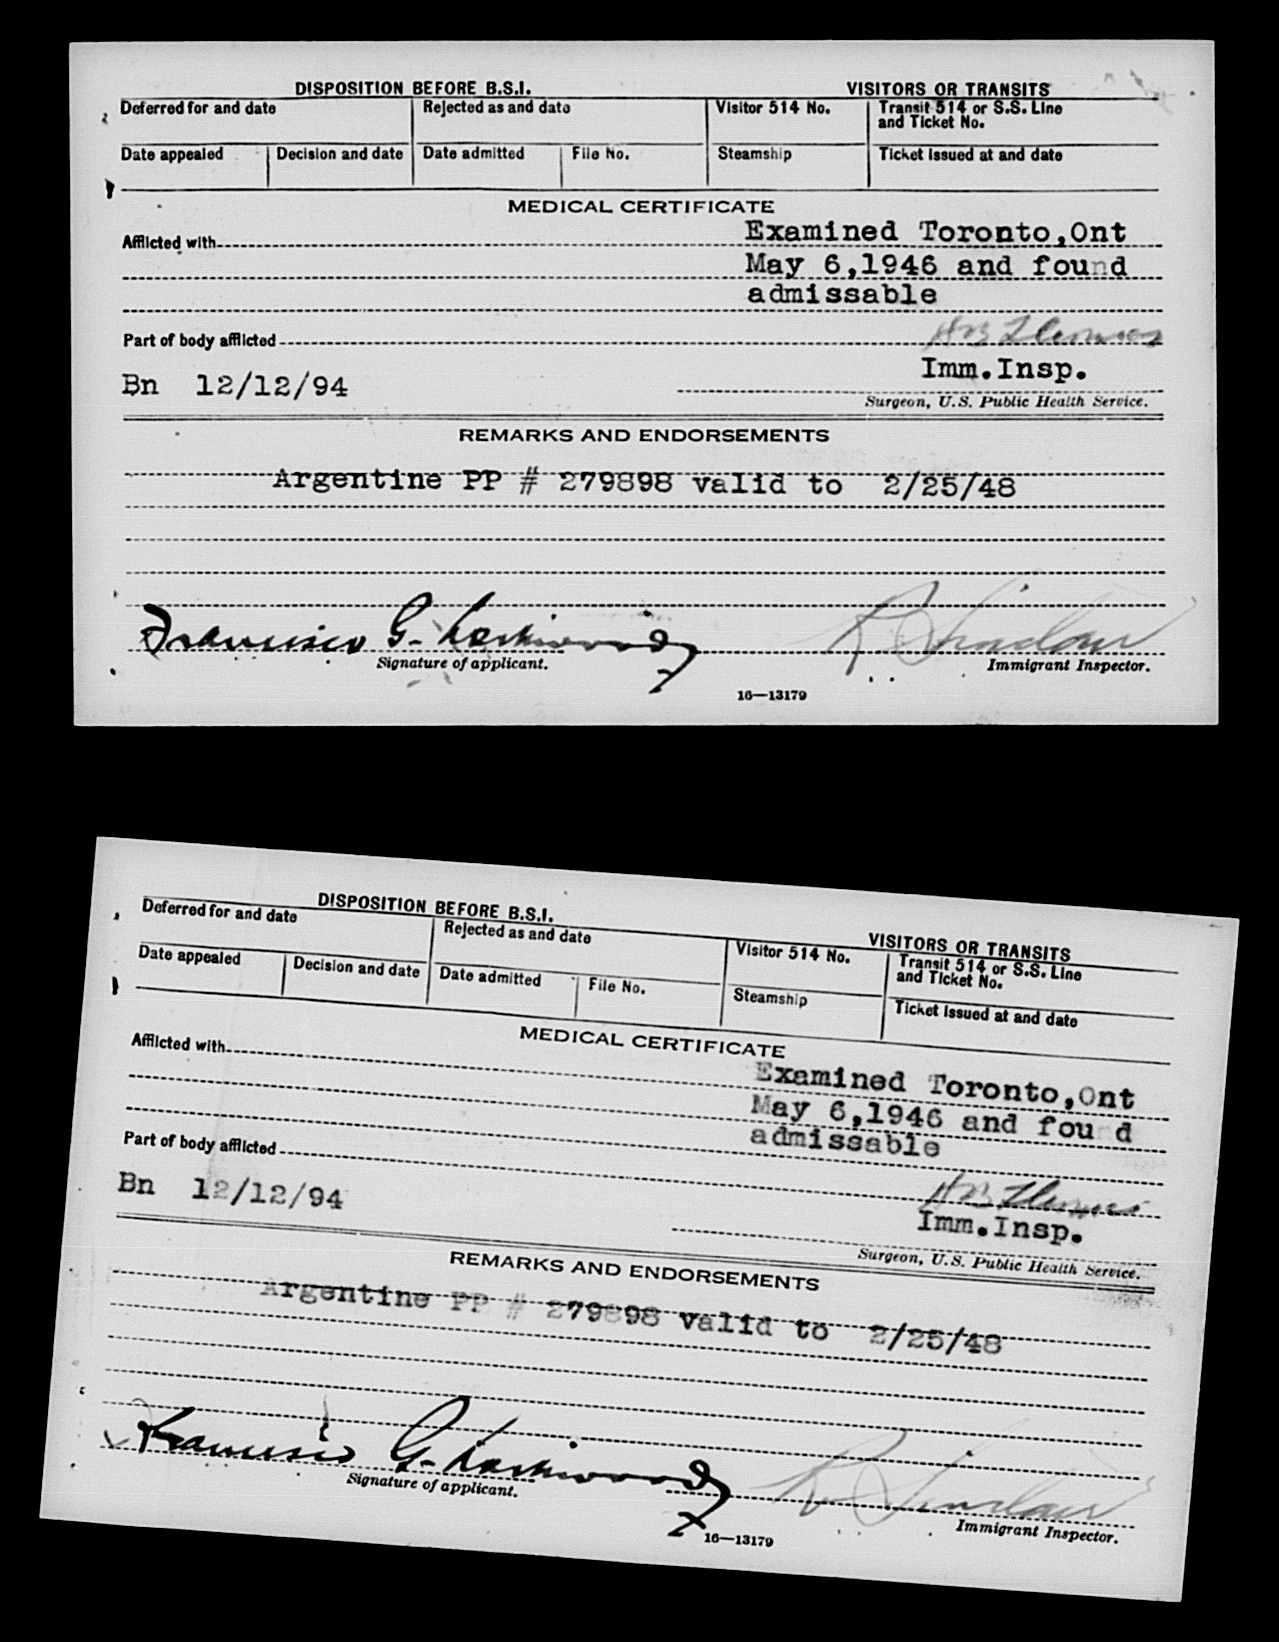 DISPOSITION BEFORE B.S.I. VISITORS OR TRANSITS
Deferred for and date Rejected as and date Visitor 514 No. Transit 514 or S.S. Line
and Ticket No.
Date appealed Decision and date Date admitted File No. Steamship Ticket issued at and date
MEDICAL CERTIFICATE
Afflicted with Examined Toronto,Ont
May 6,1946 and found
admissable
Part of body afflicted
Bn 12/12/94 Imm.Insp.
Surgeon, U.S. Public Health Service.
REMARKS AND ENDORSEMENTS
Argentine PP # 279898 valid to 2/25/48
Francisco G. R Sinclair
Signature of applicant. Immigrant Inspector.
16—13179
DISPOSITION BEFORE B.S.I. VISITORS OR TRANSITS
Deferred for and date Rejected as and date Visitor 514 No. Transit 514 or S.S. Line
and Ticket No.
Date appealed Decision and date Date admitted File No. Steamship Ticket issued at and date
MEDICAL CERTIFICATE
Afflicted with Examined Toronto,Ont
May 6,1946 and fou d
admissable
Part of body afflicted
Bn 12/12/94 Imm.Insp.
Surgeon, U.S. Public Health Service.
REMARKS AND ENDORSEMENTS
Argentine PP # 279898 valid to 2/25/48
Francisco G. R Sinclair
Signature of applicant. Immigrant Inspector.
16—13179